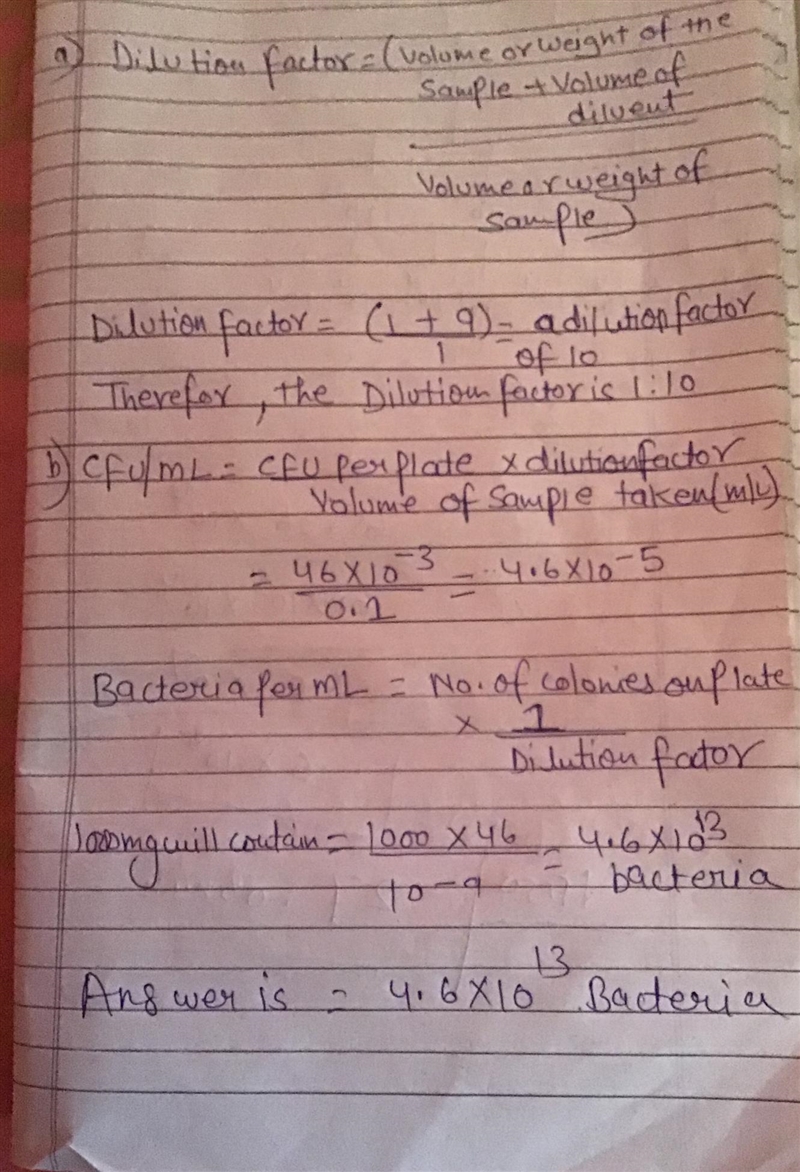 a) Dilution factor = (Volume or weight of the
Sample + Volume of
diluent
Volume or weight of
Sample)
Dilution factor = (1 + 9) = a dilution factor
1 of 10
Therefor, the Dilution factor is 1:10
b) CFU/mL = CFU per plate x dilution factor
Volume of Sample taken (mL)
= 46 X 10⁻³ = 4.6 X 10⁻⁵
0.1
Bacteria Per mL = No. of colonies on Plate
x 1
Dilution factor
1000mg will contain = 1000 X 46 = 4.6 X 10¹³
10⁻⁹ bacteria
Answer is = 4.6 X 10¹³ Bacteria